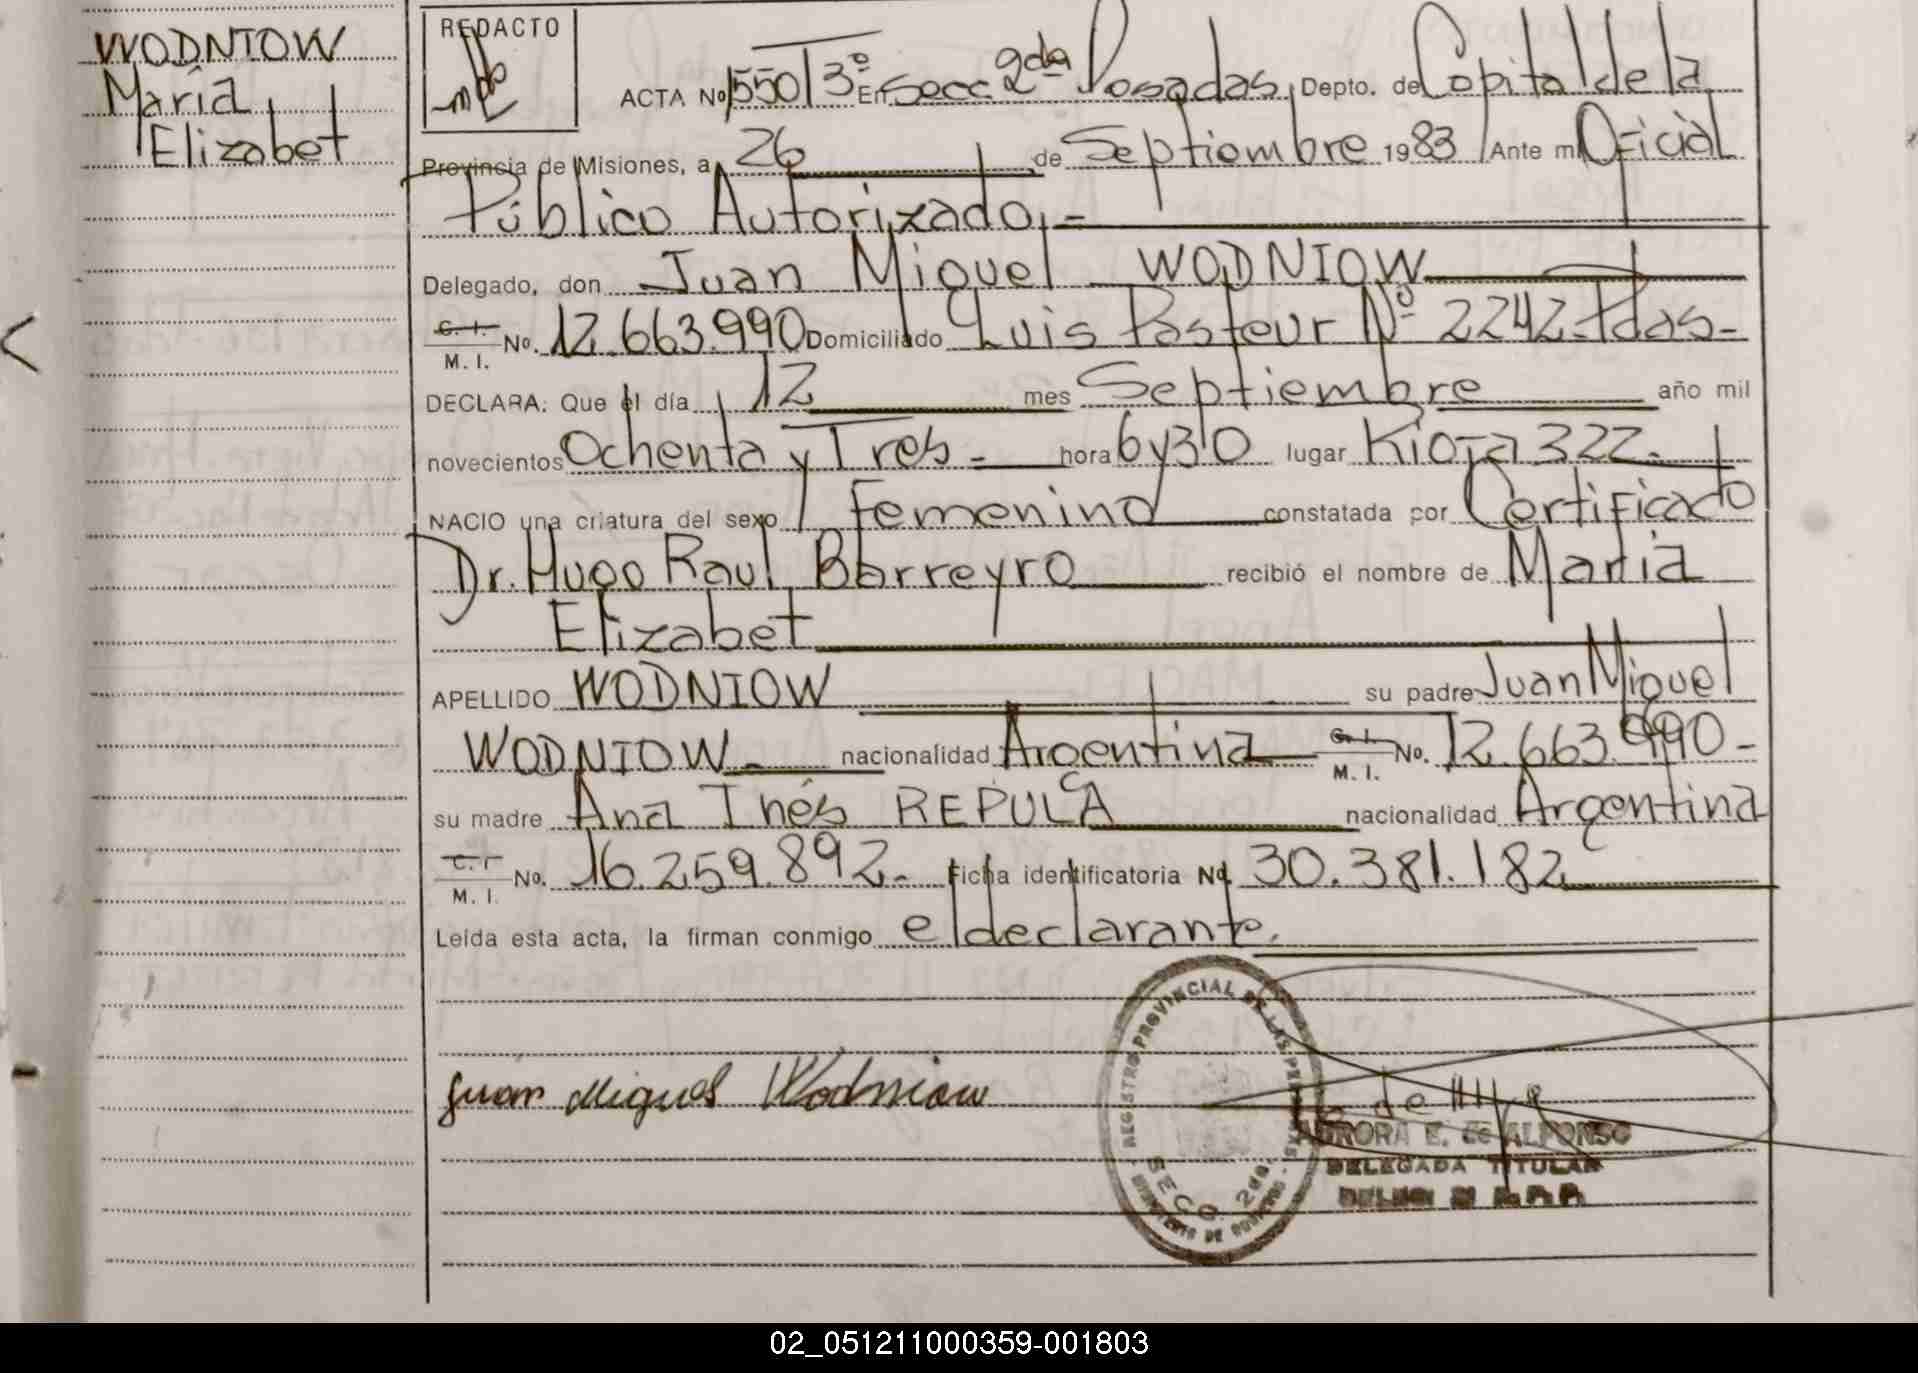 WODNIOW
María
Elizabet
REDACTO
ACTA No 550 / 3º En Secc. 2da Posadas, Depto. de Capital de la
Provincia de Misiones, a 26 de Septiembre 1983 Ante mi Oficial
Público Autorizado.-
Delegado, don Juan Miguel WODNIOW
C. I. M. I. No. 12.663.990 Domiciliado Luis Pasteur Nº 2242-Pdas-
DECLARA: Que el día 12 mes Septiembre año mil
novecientos Ochenta y Tres - hora 6 y 30 lugar Rioja 322.-
NACIO una criatura del sexo Femenino constatada por Certificado
Dr. Hugo Raul Barreyro recibió el nombre de María
Elizabet
APELLIDO WODNIOW su padre Juan Miguel
WODNIOW - nacionalidad Argentina C. I. M. I. No. 12.663.990-
su madre Ana Inés REPULA nacionalidad Argentina
C. I M. I. No. 16.259.892- Ficha identificatoria No. 30.381.182
Leída esta acta, la firman conmigo el declarante.
Juan Miguel Wodniow
REGISTRO PROVINCIAL DE LAS PERSONAS
SECC. 2da.
AURORA E. de ALFONSO
DELEGADA TITULAR
02_051211000359-001803